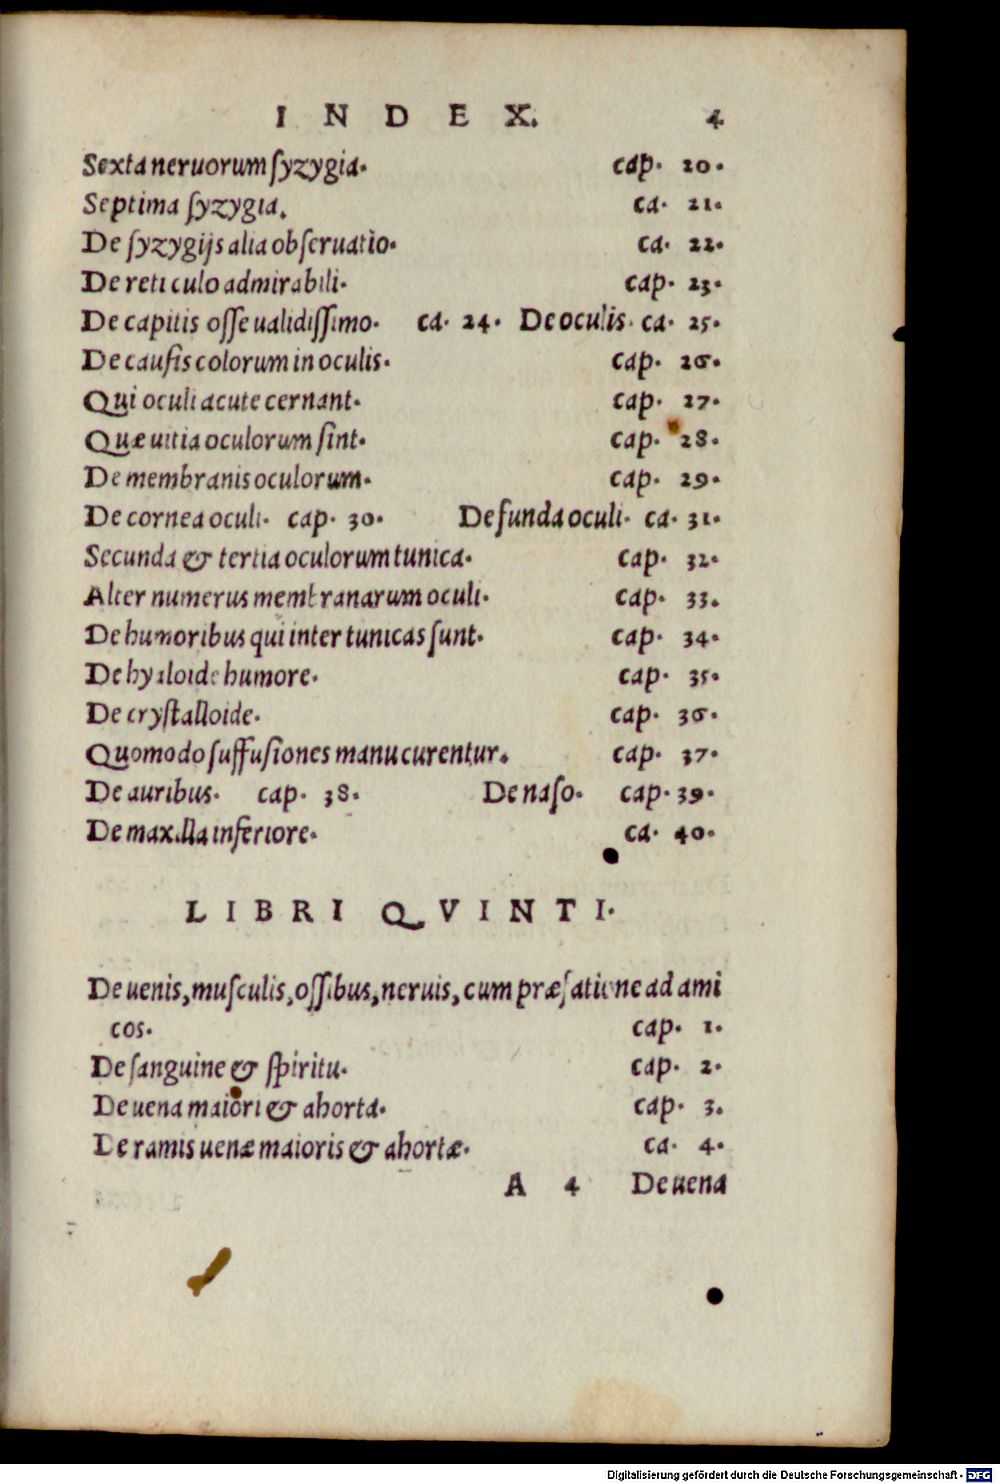 INDEX. 4
Sexta neruorum ſyzygia. cap. 20.
Septima ſyzygia. ca. 21.
De ſyzygijs alia obſeruatio. ca. 22.
De reticulo admirabili. cap. 23.
De capitis oſſe ualidiſſimo. ca. 24. De oculis. ca. 25.
De cauſis colorum in oculis. cap. 26.
Qui oculi acute cernant. cap. 27.
Quæ uitia oculorum ſint. cap. 28.
De membranis oculorum. cap. 29.
De cornea oculi. cap. 30. De funda oculi. ca. 31.
Secunda & tertia oculorum tunica. cap. 32.
Alter numerus membranarum oculi. cap. 33.
De humoribus qui inter tunicas ſunt. cap. 34.
De hyaloide humore. cap. 35.
De cryſtalloide. cap. 36.
Quomodo ſuffuſiones manu curentur. cap. 37.
De auribus. cap. 38. De naſo. cap. 39.
De maxilla inferiore. ca. 40.
LIBRI QVINTI.
De uenis, muſculis, oſſibus, neruis, cum præfatione ad ami
cos. cap. 1.
De ſanguine & ſpiritu. cap. 2.
De uena maiori & ahorta. cap. 3.
De ramis uenæ maioris & ahortæ. ca. 4.
A 4 De uena
Digitalisierung gefördert durch die Deutsche Forschungsgemeinschaft - DFG